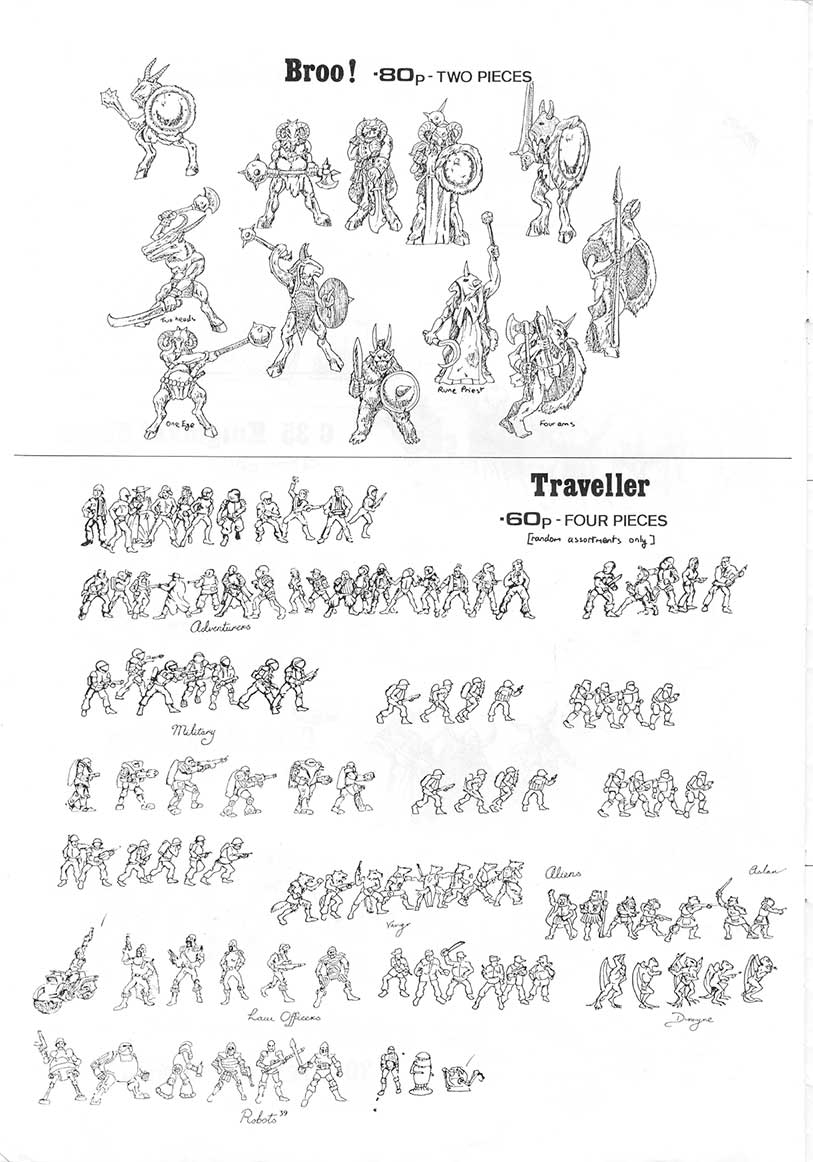 Broo! ·80p - TWO PIECES
Two heads
One Eye
Rune Priest
Four arms
Traveller
·60p - FOUR PIECES
[random assortments only]
Adventurers
Military
Aliens
Aslan
Vargr
Law Officers
Droyne
Robots
39